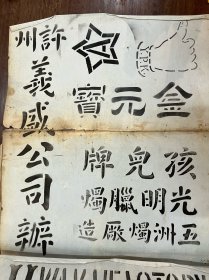 金元寶
孩兒牌
光明臘燭
五洲燭廠造
許州
義盛公司辦